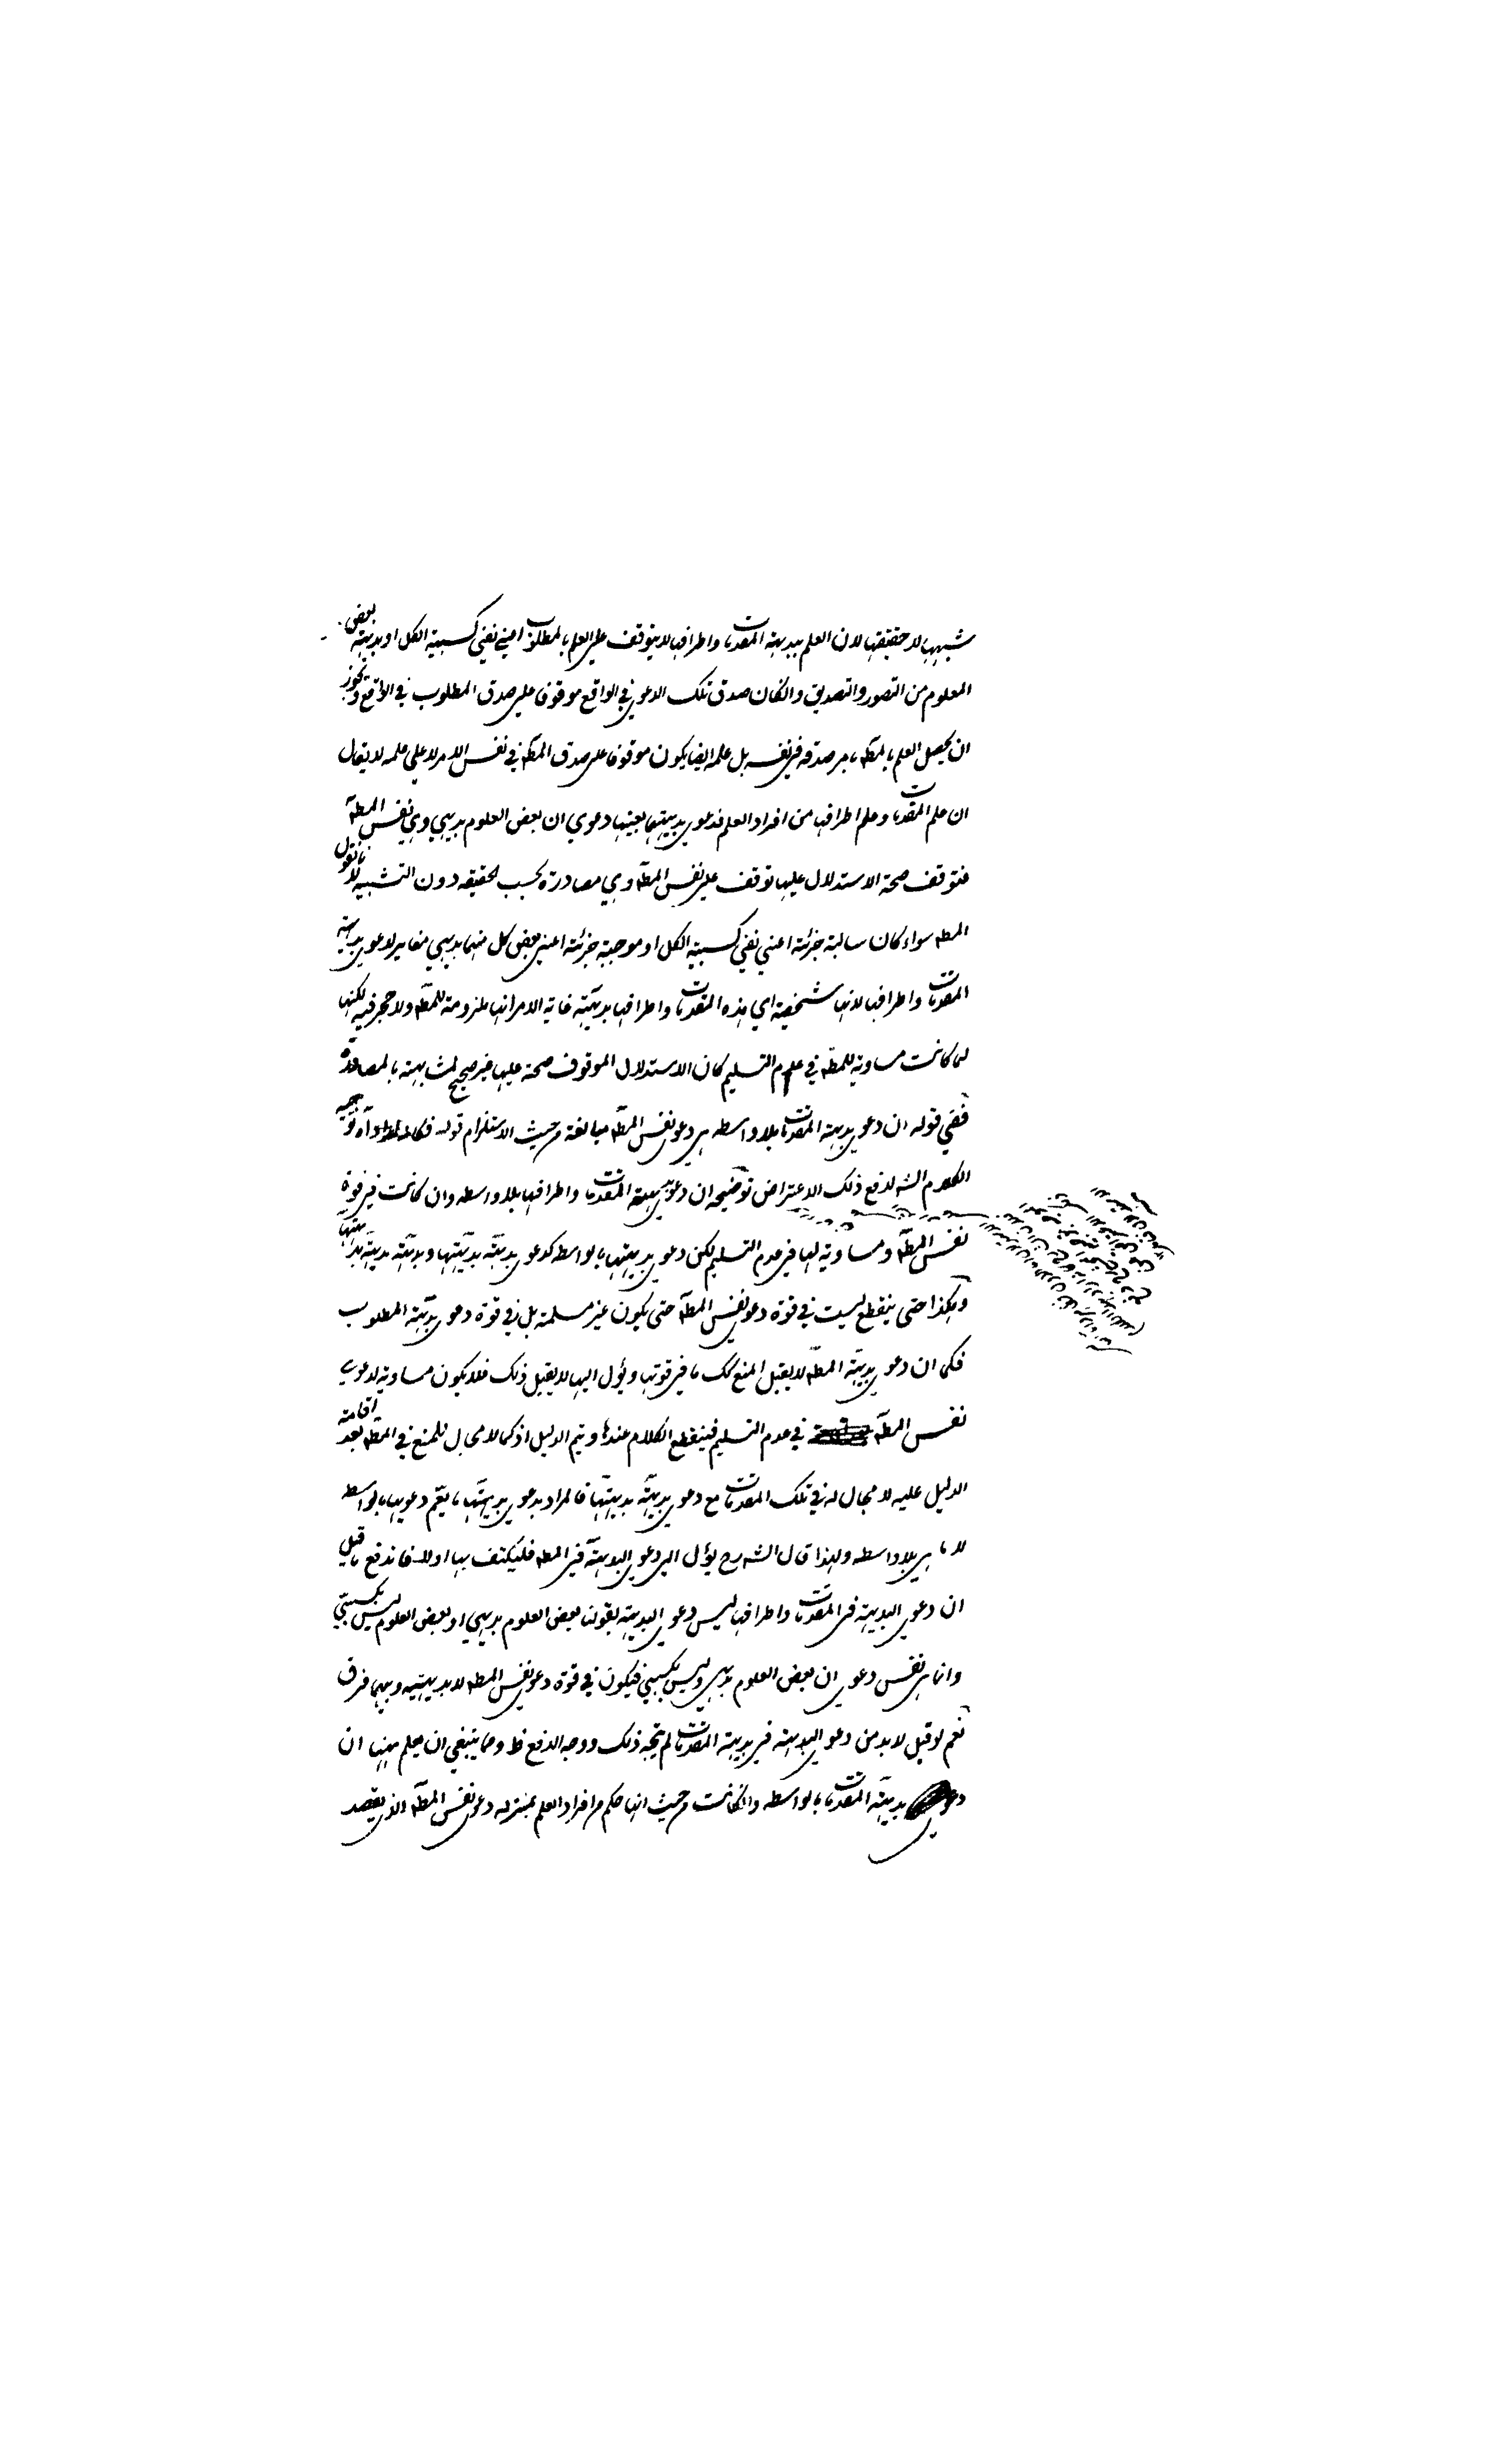 شبهها لا حقيقتها لان العلم ببديهة المقدمات واطرافها لا يتوقف على العلم بالمطلوب اعني نفي كسبية الكل او بديهة بعض
المعلوم من التصور والتصديق وان كان صدق تلك الدعوى في الواقع موقوفا على صدق المطلوب في الواقع ويجوز
ان يحصل العلم بالمط صدقه في نفسه بل علمه ايضا يكون موقوفا على صدق المط في نفس الامر لا على علمه لا يقال
ان علم المقدمات وعلم اطرافها من افراد العلم فدعوى بديهيتهما بعينها دعوى ان بعض العلوم بديهي وهي نفس المط
فتوقف صحة الاستدلال عليها توقف على نفس المط وهي مصادرة بحسب الحقيقه دون التشبيه لانا نقول
المط سواء كان سالبة جزئية اعني نفي كسبية الكل او موجبة جزئية اعني بعض كل منهما بديهي مغاير لدعوى بداهة
المقدمات واطرافها لانها شخصية اي هذه المقدمات واطرافها بديهية غاية الامر انها ملزومة للمط ولا حجر فيه لكنها
لما كانت مساوية للمط في عدم التسليم كان الاستدلال الموقوف صحته عليها غير صحيح لمشابهته بالمصادرة
ففي قوله ان دعوى بديهة المقدمات بلا واسطه هي دعوى نفس المط مبالغة من حيث الاستلزام قوله فكما آه توجيه
الكلام الش لدفع ذلك الاعتراض توضيحه ان دعوى بديهة المقدمات واطرافها بلا واسطه وان كانت في قوة
نفس المط ومساوية لها في عدم التسليم لكن دعوى بديهيتها بالواسطه كدعوى بديهية بديهيتها وبديهية بديهية بديهيتها
وهكذا حتى ينقطع ليست في قوة دعوى نفس المط حتى يكون غير مسلمة بل في قوة دعوى بديهية المطلوب
فكما ان دعوى بديهية المط لا يقبل المنع كك ما في قوتها ويؤل اليها لا يقبل ذلك فلا يكون مساوية لدعوى
نفس المط في عدم التسليم فينقطع الكلام عندها ويتم الدليل اذ كما لا مجال للمنع في المط بعد اقامة
الدليل عليه لا مجال له في تلك المقدمات مع دعوى بديهية بديهيتها فالمراد بدعوى بديهيتها ما يعم دعويها بالواسطه
لا ما هي بلا واسطه ولهذا قال الشارح يؤل الى دعوى البديهة في المط فليكتف بها اولا فاندفع ما قيل
ان دعوى البديهة في المقدمات واطرافها ليس دعوى البديهة بقولنا بعض العلوم بديهي او بعض العلوم ليس بكسبي
وانما هي نفس دعوى ان بعض العلوم بديهي وليس بكسبي فيكون في قوة دعوى نفس المط لا بديهيته وبينهما فرق
نعم لو قيل لا بد من دعوى البديهة في بديهة المقدمات لم يتجه ذلك ووجه الدفع ظ ومما ينبغي ان يعلم ههنا ان
دعوى بديهية المقدمات بالواسطه وان كانت من حيث انها حكم من افراد العلم بمنزلة دعوى نفس المط الذي يقصد